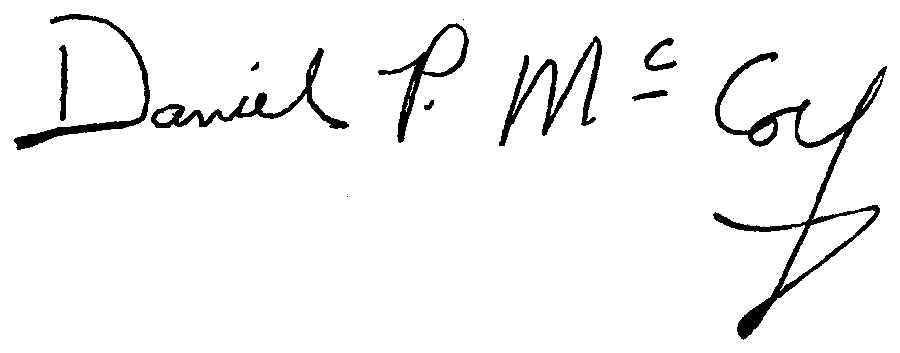 Daniel P. Mc Coy